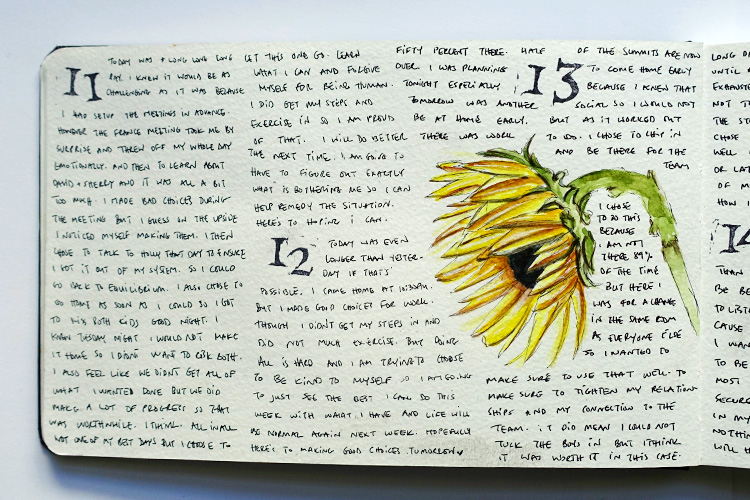 11
TODAY WAS A LONG LONG LONG
DAY. I KNEW IT WOULD BE AS
CHALLENGING AS IT WAS BECAUSE
I HAD SETUP THE MEETINGS IN ADVANCE.
HOWEVER THE FRANCE MEETING TOOK ME BY
SURPRISE AND THREW OFF MY WHOLE DAY
EMOTIONALLY. AND THEN TO LEARN ABOUT
DAVID + SHERRY AND IT WAS ALL A BIT
TOO MUCH. I MADE BAD CHOICES DURING
THE MEETING BUT I GUESS ON THE UPSIDE
I NOTICED MYSELF MAKING THEM. I THEN
CHOSE TO TALK TO HOLLY THAT DAY TO ENSURE
I GOT IT OUT OF MY SYSTEM. SO I COULD
GO BACK TO EQUILIBRIUM. I ALSO CHOSE TO
GO HOME AS SOON AS I COULD SO I GOT
TO KISS BOTH KIDS GOOD NIGHT. I
KNEW TUESDAY NIGHT I WOULD NOT MAKE
IT HOME SO I DIDN'T WANT TO RISK BOTH.
I ALSO FEEL LIKE WE DIDN'T GET ALL OF
WHAT I WANTED DONE BUT WE DID
MAKE A LOT OF PROGRESS SO THAT
WAS WORTHWHILE. I THINK. ALL IN ALL
NOT ONE OF MY BEST DAYS BUT I CHOOSE TO
LET THIS ONE GO. LEARN
WHAT I CAN AND FORGIVE
MYSELF FOR BEING HUMAN.
I DID GET MY STEPS AND
EXERCISE IN SO I AM PROUD
OF THAT. I WILL DO BETTER
THE NEXT TIME. I AM GOING TO
HAVE TO FIGURE OUT EXACTLY
WHAT IS BOTHERING ME SO I CAN
HELP REMEDY THE SITUATION.
HERE'S TO HOPING I CAN.
12
TODAY WAS EVEN
LONGER THAN YESTER-
DAY IF THAT'S
POSSIBLE. I CAME HOME AT 10:30PM.
BUT I MADE GOOD CHOICES FOR WORK.
THOUGH I DIDN'T GET MY STEPS IN AND
DID NOT MUCH EXERCISE. BUT DOING
ALL IS HARD AND I AM TRYING TO CHOOSE
TO BE KIND TO MYSELF SO I AM GOING
TO JUST SEE THE BEST I CAN DO THIS
WEEK WITH WHAT I HAVE AND LIFE WILL
BE NORMAL AGAIN NEXT WEEK. HOPEFULLY
HERE'S TO MAKING GOOD CHOICES TOMORROW
FIFTY PERCENT THERE. HALF OF THE SUMMITS ARE NOW
OVER. I WAS PLANNING
TONIGHT ESPECIALLY
TOMORROW WAS ANOTHER
13
TO COME HOME EARLY
BECAUSE I KNEW THAT
SOCIAL SO I WOULD NOT
BE AT HOME EARLY. BUT AS IT WORKED OUT
THERE WAS WORK TO DO. I CHOSE TO CHIP IN
AND BE THERE FOR THE
TEAM
I CHOSE
TO DO THIS
BECAUSE
I AM NOT
THERE 89%
OF THE TIME
BUT HERE I
WAS FOR A CHANGE
IN THE SAME ROOM
AS EVERYONE ELSE
SO I WANTED TO
MAKE SURE TO USE THAT WELL. TO
MAKE SURE TO TIGHTEN MY RELATION-
SHIPS AND MY CONNECTION TO THE
TEAM. IT DID MEAN I COULD NOT
TUCK THE BOYS IN BUT I THINK
IT WAS WORTH IT IN THIS CASE.
LONG
UNTIL
EXHAUST
NOT
THE
CHOSE
WELL
OR LAT
OF M
HOW I
14
THAN
BE BE
TO LIST
CAUSE
I WAN
TO BE
MOST
SECURE
IN MY
NOTHIN
WILL H